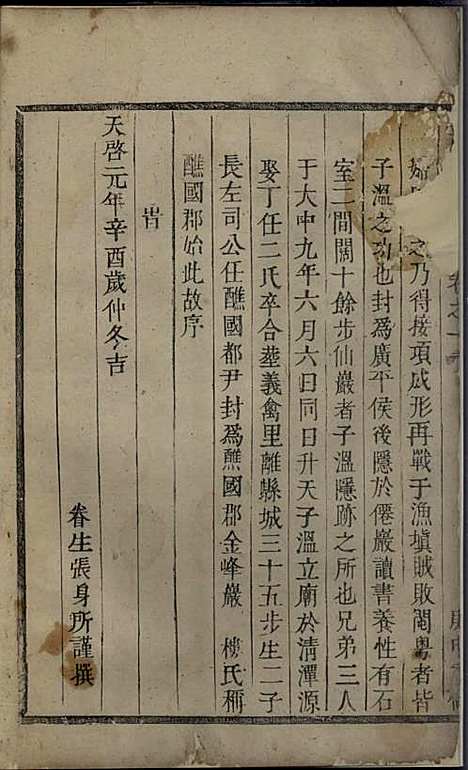 之乃得接項成形再戰于漁塡賊敗閩粤者皆
子溫之功也封爲廣平侯後隱於僊巖讀書養性有石
室二間闊十餘步仙巖者子溫隱跡之所也兄弟三人
于大中九年六月六日同日升天子溫立廟於清潭源
娶丁任二氏卒合葬義禽里離縣城三十五步生二子
長左司公任醮國都尹封爲醮國郡金峰巖 樓氏稱
醮國郡始此故序
旹
天啓二元年辛酉歲仲冬吉
眷生張身所謹撰
卷之一